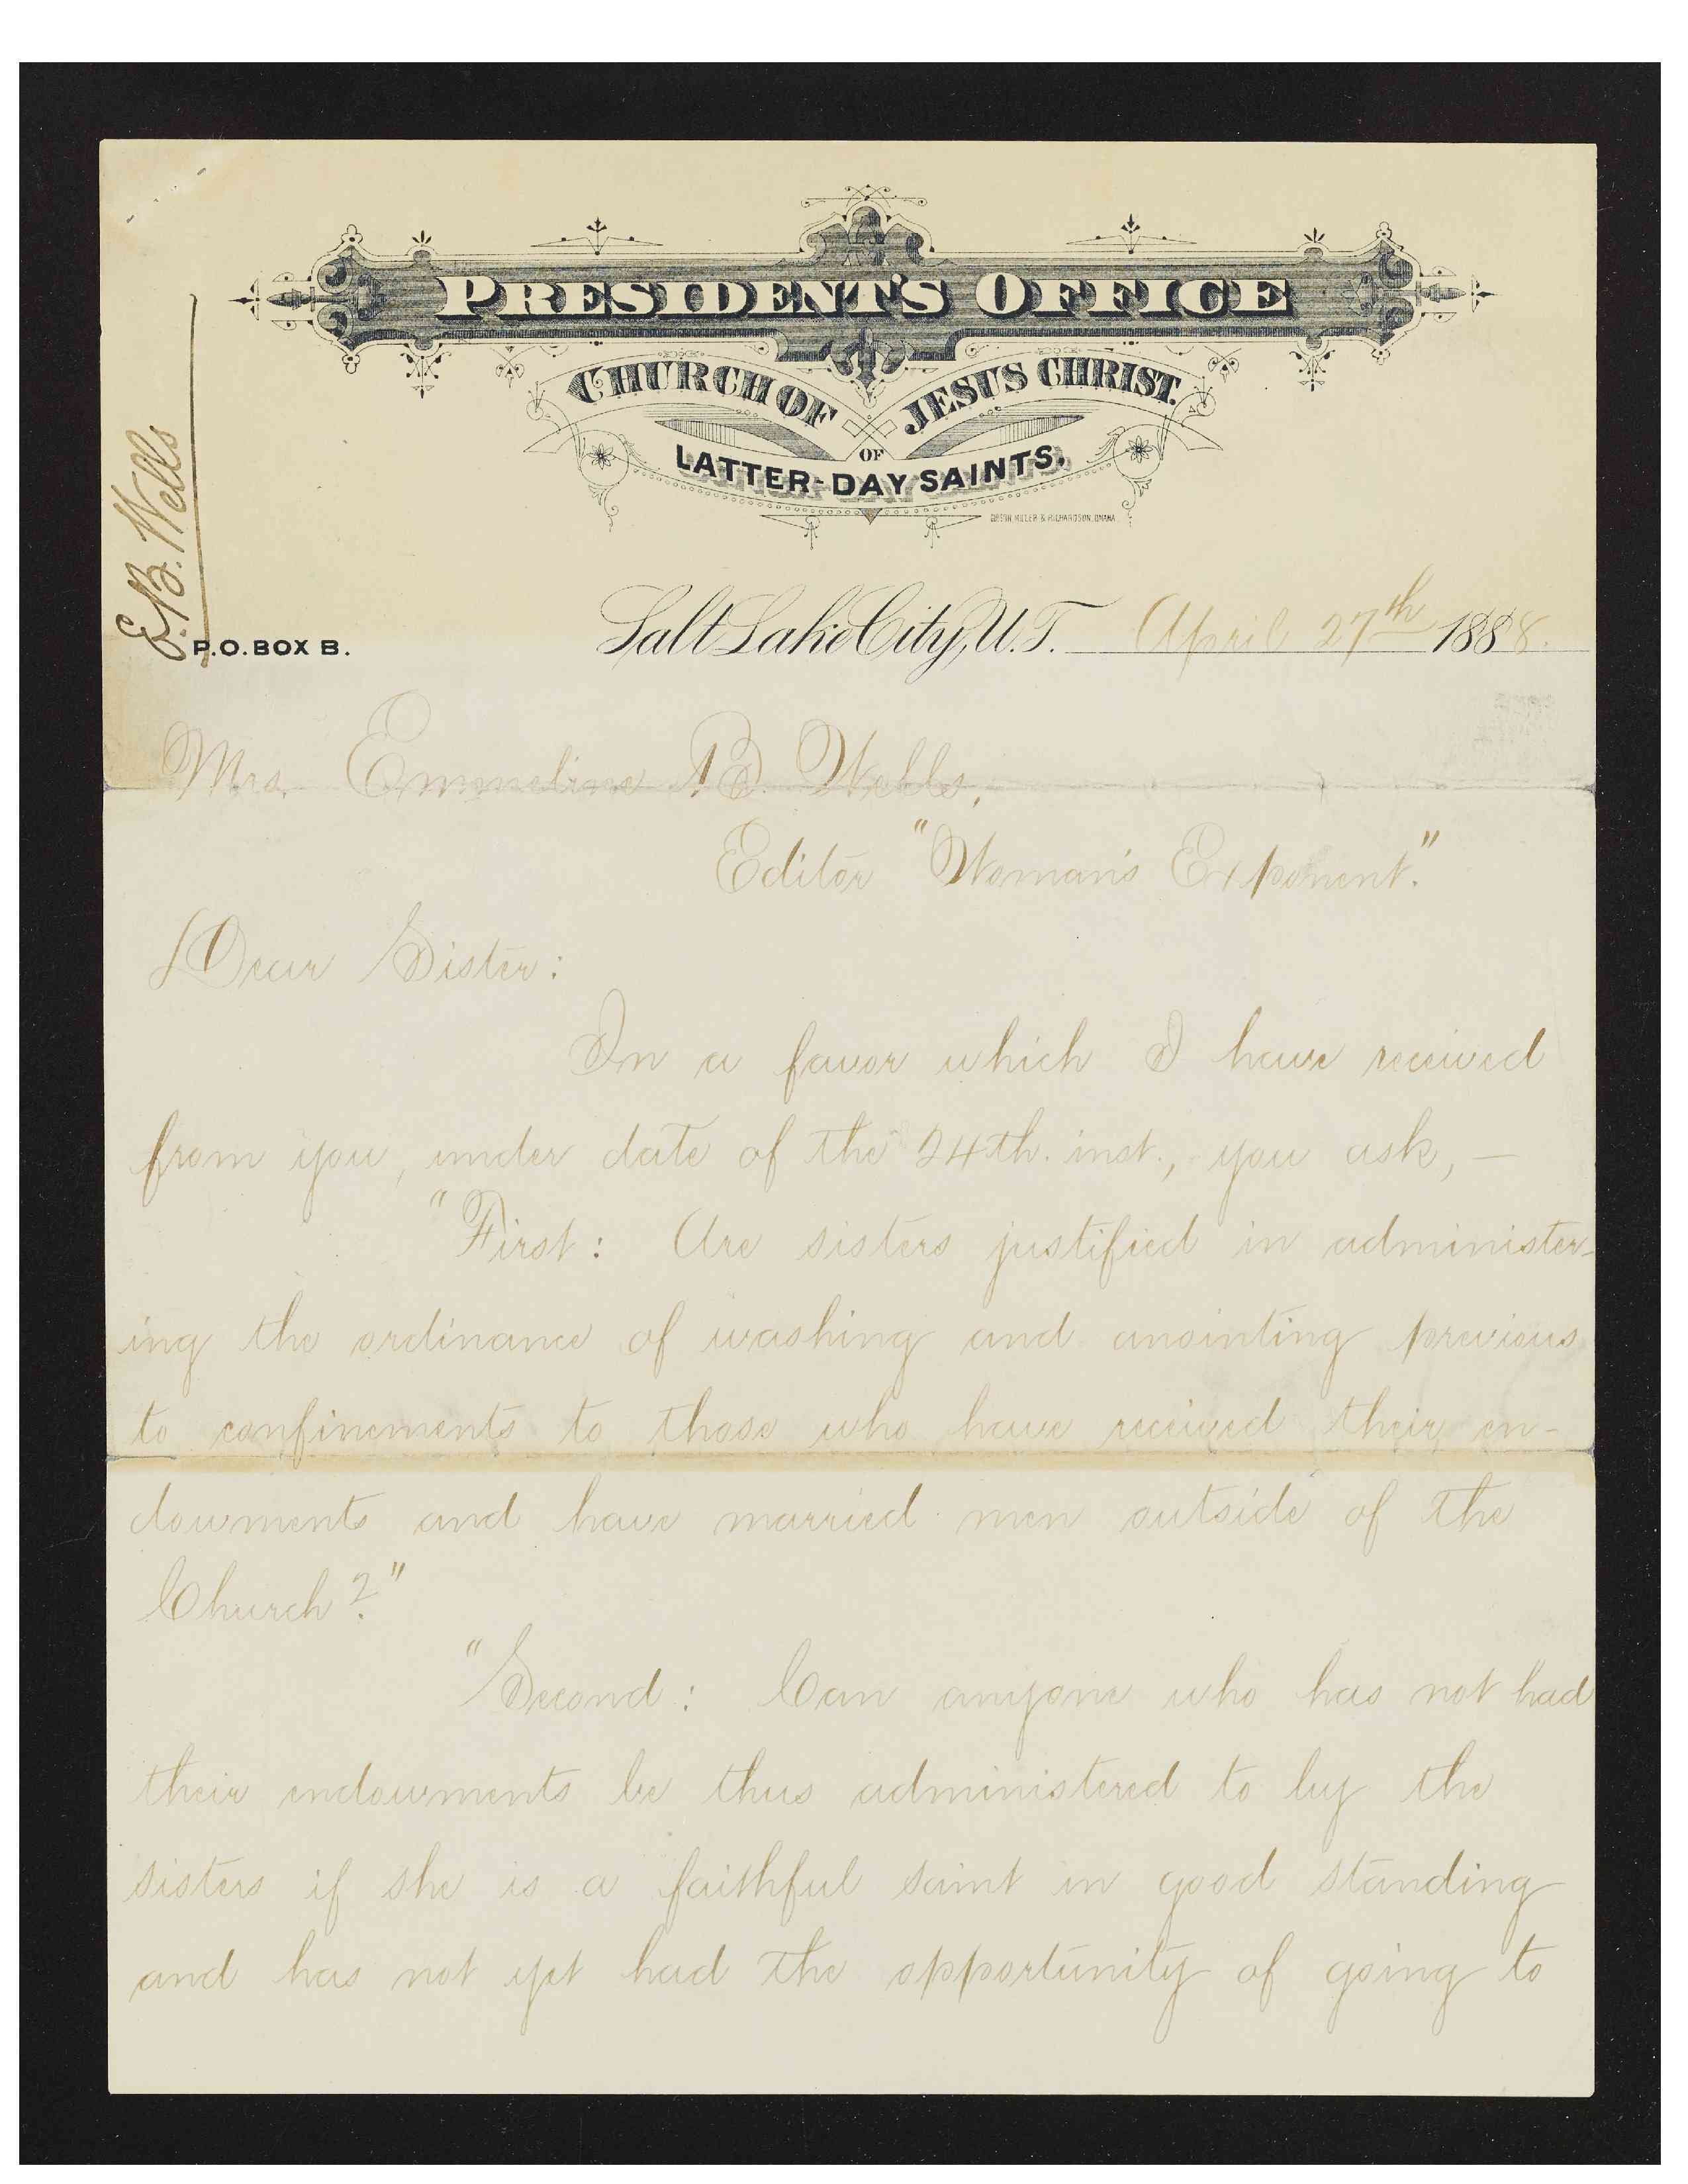 PRESIDENT'S OFFICE
CHURCH OF JESUS CHRIST.
OF
LATTER-DAY SAINTS.
E. B. Wells
P.O. BOX B.
Salt Lake City, U.T. April 27th 1888.
Mrs. Emmeline B. Wells,
Editor "Woman's Exponent."
Dear Sister:
In a favor which I have received
from you, under date of the 24th. inst., you ask, —
"First: Are sisters justified in administer-
ing the ordinance of washing and anointing previous
to confinements to those who have received their en-
dowments and have married men outside of the
Church?"
"Second: Can anyone who has not had
their endowments be thus administered to by the
sisters if she is a faithful saint in good standing
and has not yet had the opportunity of going to